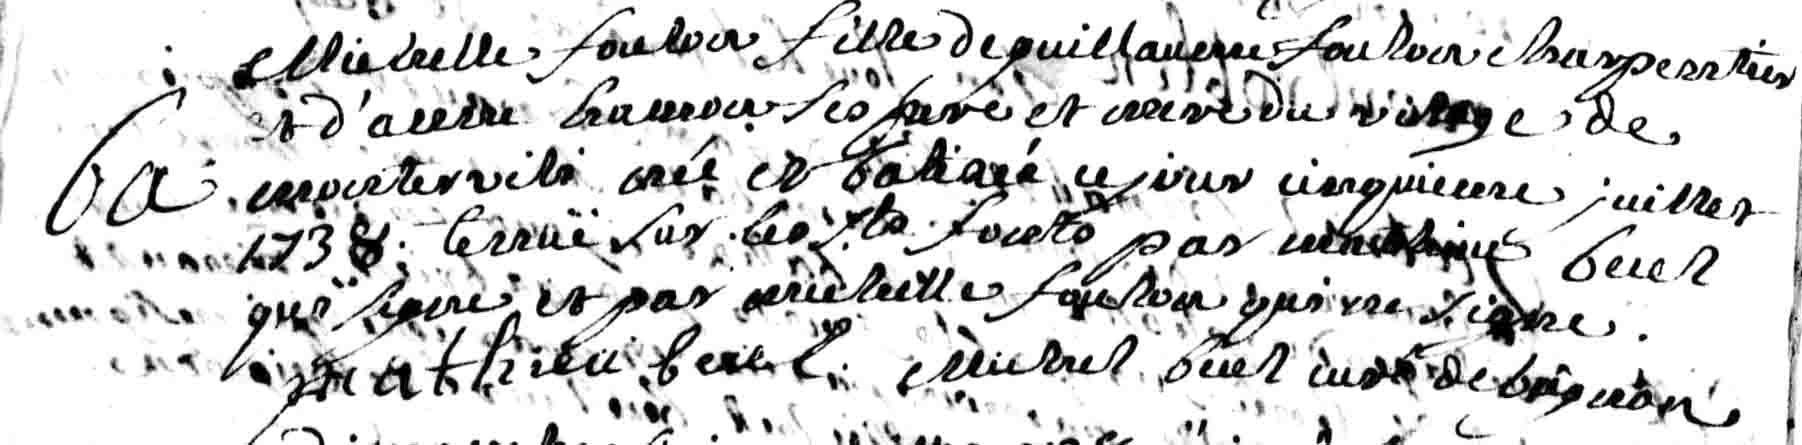 Michelle foulon fille de guillaume foulon charpentier
et d'anne hamon ses pere et mere du village de
ba. montervily née et batisée ce jour cinquieme juillet
1738. tenuë sur les sts fonts par mathieu buel
qui signe et par michelle foulon qui ne signe.
mathieu buel. Michel buel curé de